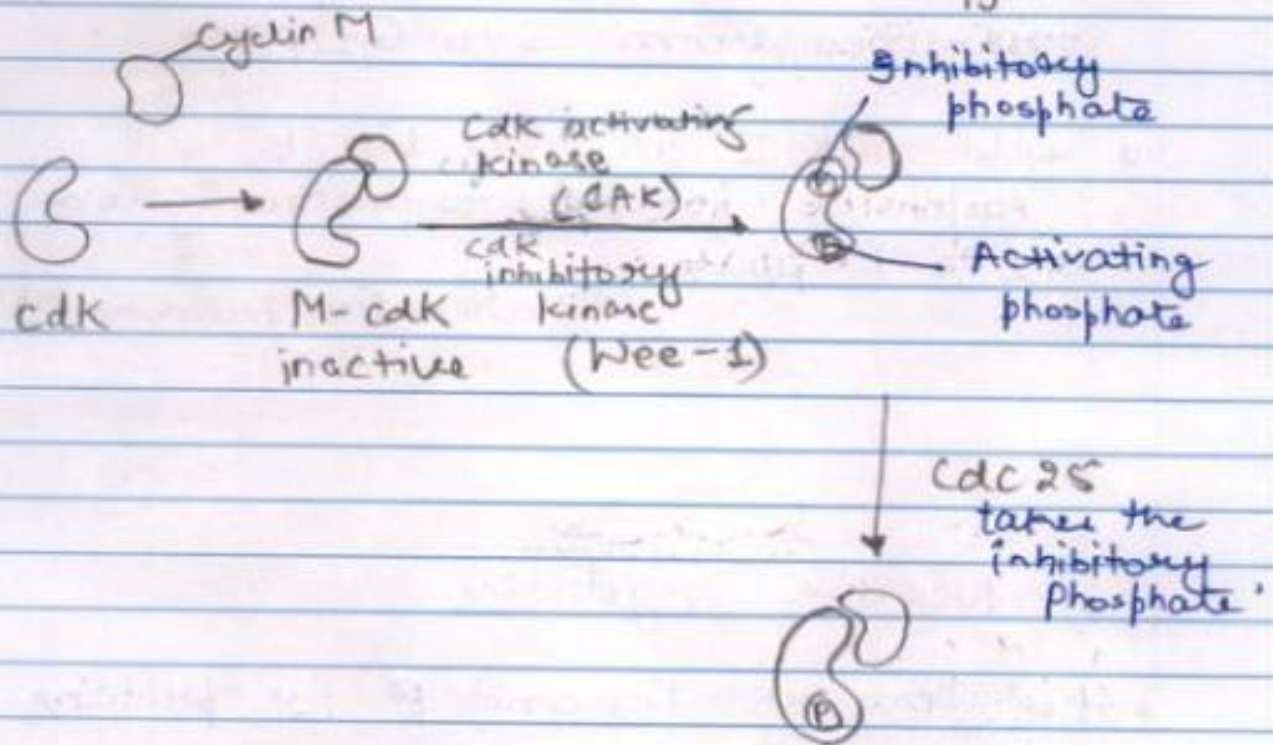 Cyclin M
Inhibitory
phosphate
Cdk activating
kinase
(CAK)
cdk
inhibitory
kinase
(Wee-1)
P
P
Activating
phosphate
cdk
M-cdk
inactive
Cdc 25
takes the
inhibitory
Phosphate
P